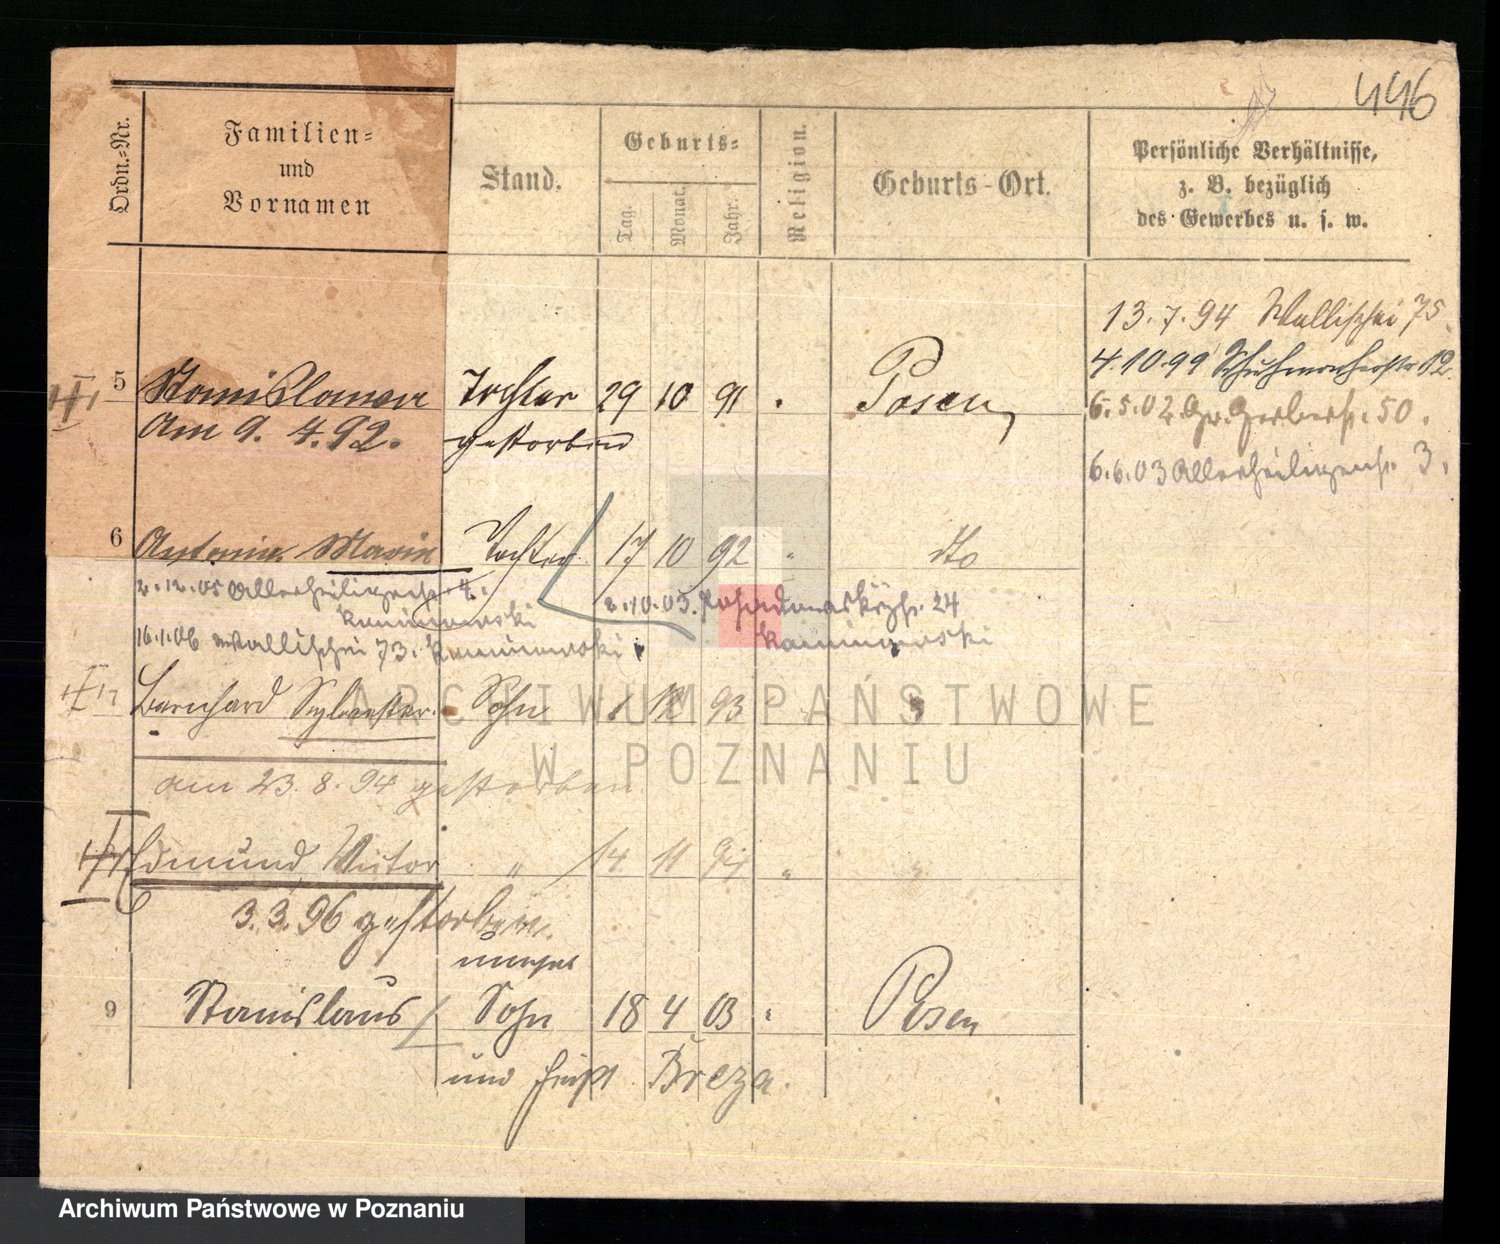 446
Ordn.-Nr.
Familien-
und
Vornamen
Stand.
Geburts-
Tag.
Monat.
Jahr.
Religion.
Geburts-Ort.
Persönliche Verhältnisse,
z. B. bezüglich
des Gewerbes u. s. w.
13.7.94 Wallischei 75.
4.10.99 Schuhmacherstr 12.
6.5.02 Gr. Gerberstr. 50.
6.6.03 Allerheiligenstr. 3.
5 Stanislawa Tochter 29 10 91 Posen,
Am 9. 4. 92. gestorben
6 Antonia Maria Tochter 17 10 92 " dto
2.12.05 Allerheiligenstr. 4. 2.10.03. 24
Kaminiewski Kaminiewski
16.1.06 Wallischei 73. Kaminiewski
Bernhard Sylvester. Sohn 1 12 93 "
am 23. 8. 94 gestorben
Edmund, Victor " 14. 11 94 " "
3. 3. 96 gestorben.
unehel
9 Stanislaus Sohn 18 4 03 " Posen
und heißt Breza.
ARCHIWUM PAŃSTWOWE
W POZNANIU
Archiwum Państwowe w Poznaniu